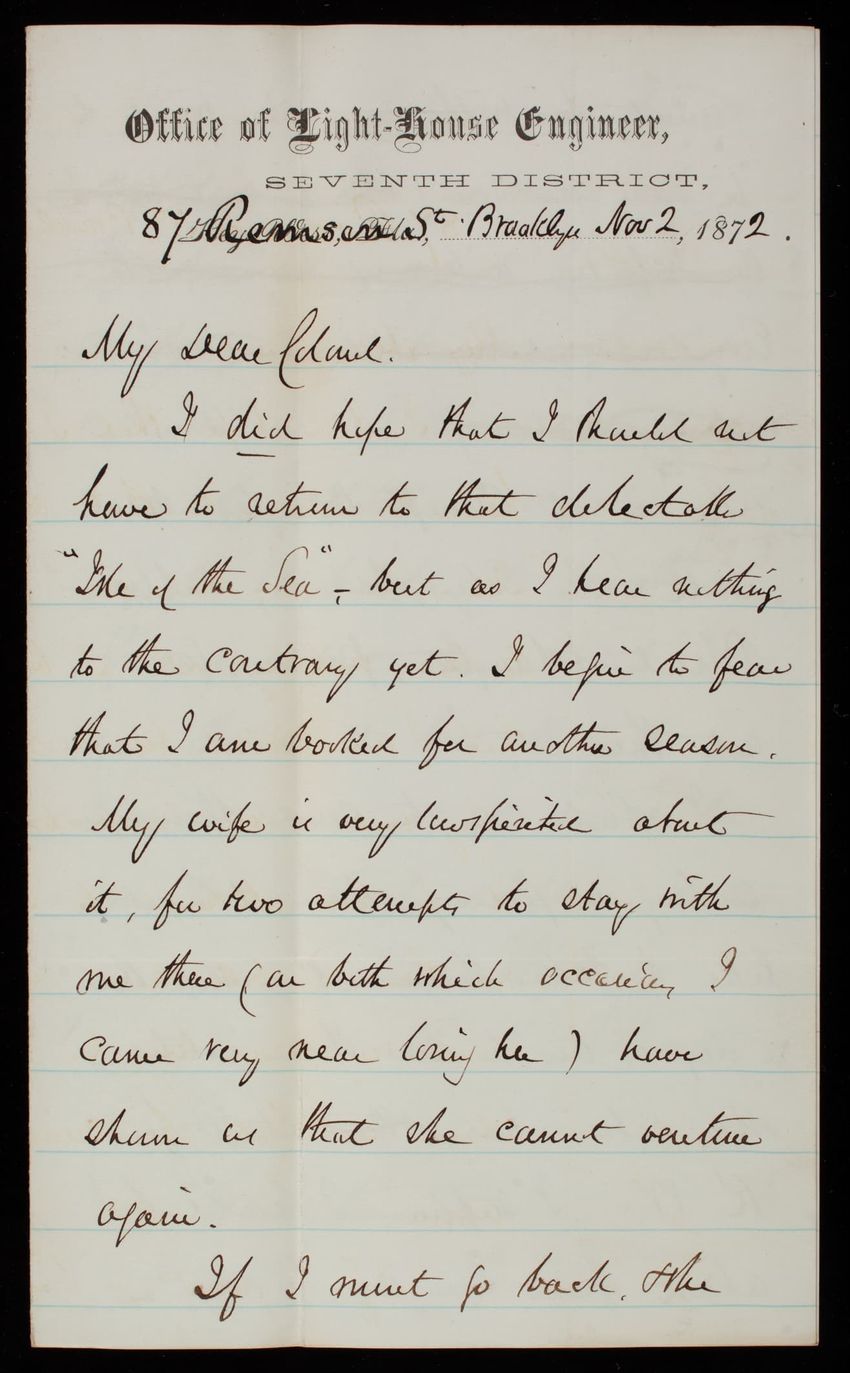 Office of Light-House Engineer,
SEVENTH DISTRICT,
87 Remsen St. Brooklyn Nov 2, 1872.
My Dear Colonel.
I did hope that I should not
have to return to that delectable
"Isle of the Sea" – but as I hear nothing
to the contrary yet. I begin to fear
that I am booked for another season.
My wife is very lowspirited about
it, for two attempts to stay with
me there (on both which occasions I
came very near losing her) have
shown us that she cannot venture
again.
If I must go back, & the